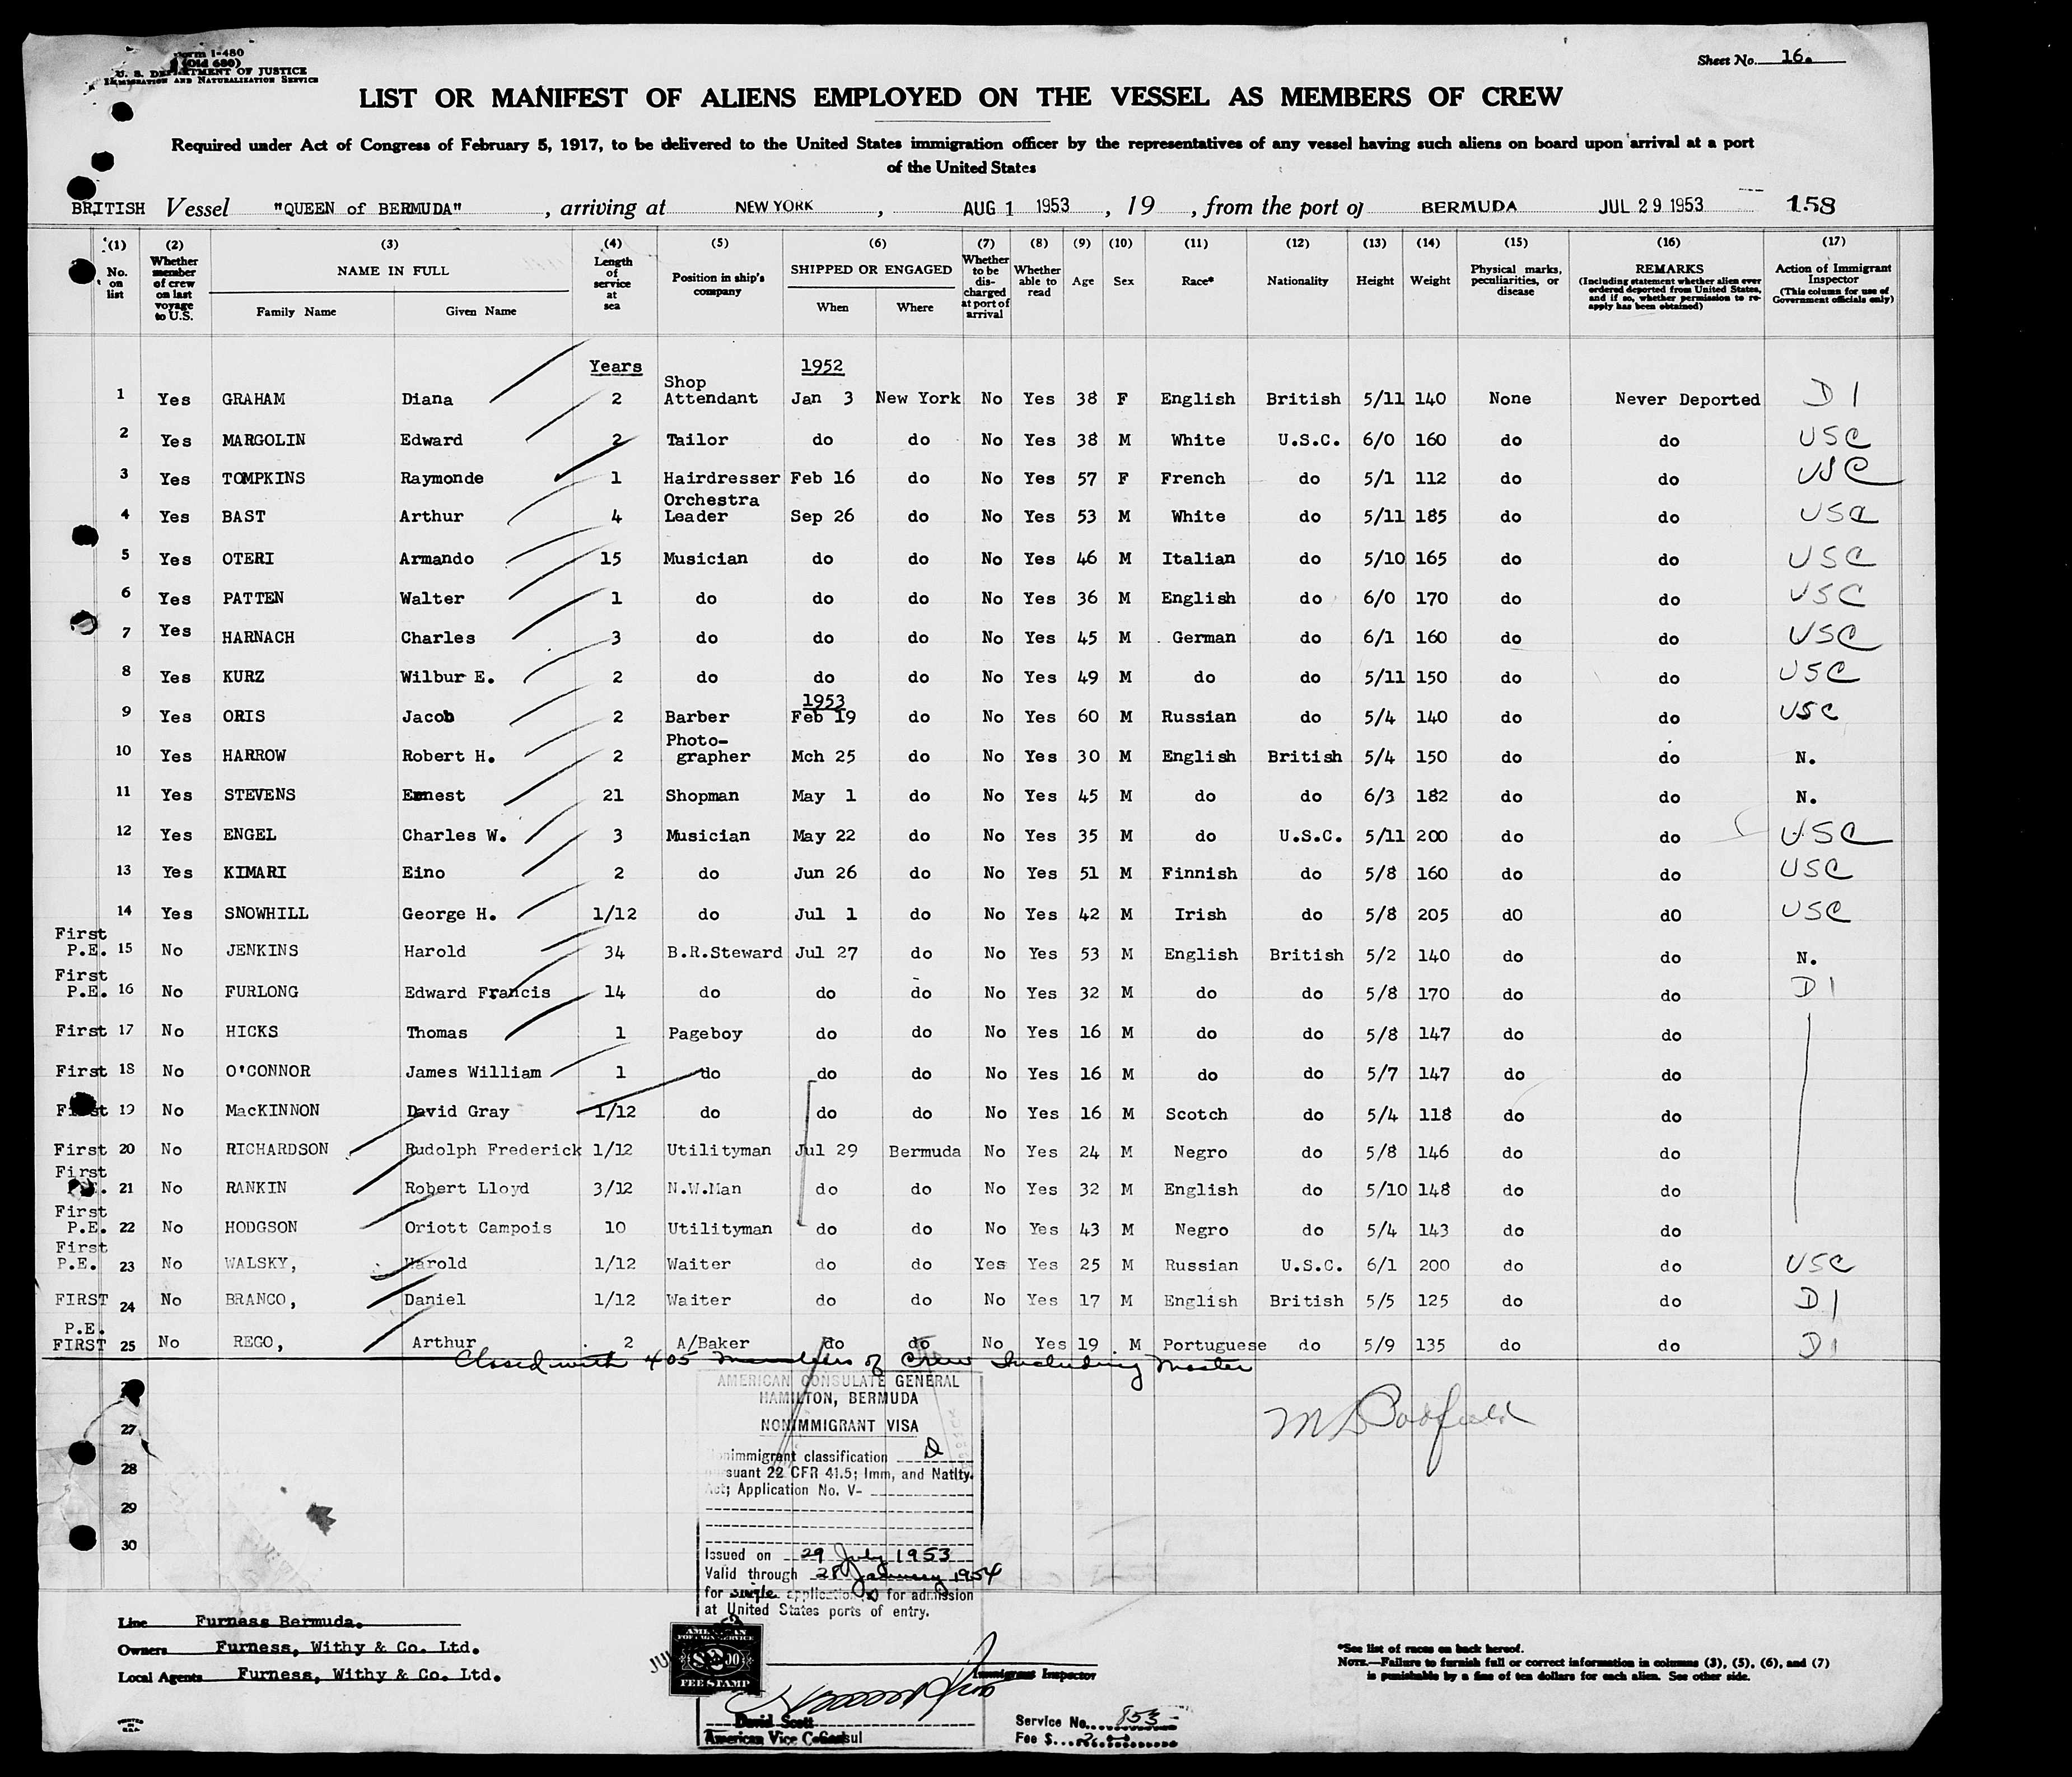 Form I-480
(Old 680)
U. S. DEPARTMENT OF JUSTICE
IMMIGRATION AND NATURALIZATION SERVICE
Sheet No. 16.
LIST OR MANIFEST OF ALIENS EMPLOYED ON THE VESSEL AS MEMBERS OF CREW
Required under Act of Congress of February 5, 1917, to be delivered to the United States immigration officer by the representatives of any vessel having such aliens on board upon arrival at a port
of the United States
BRITISH Vessel "QUEEN of BERMUDA", arriving at NEW YORK, AUG 1 1953, 19 , from the port of BERMUDA JUL 29 1953 158
(1) No. on list
(2) Whether member of crew on last voyage to U.S.
(3) NAME IN FULL Family Name Given Name
(4) Length of service at sea
(5) Position in ship's company
(6) SHIPPED OR ENGAGED When Where
(7) Whether to be discharged at port of arrival
(8) Whether able to read
(9) Age
(10) Sex
(11) Race*
(12) Nationality
(13) Height
(14) Weight
(15) Physical marks, peculiarities, or disease
(16) REMARKS (Including statement whether alien ever ordered deported from United States, and if so, whether permission to re-apply has been obtained)
(17) Action of Immigrant Inspector (This column for use of Government officials only)
Years 1952
1 Yes GRAHAM Diana 2 Shop Attendant Jan 3 New York No Yes 38 F English British 5/11 140 None Never Deported D 1
2 Yes MARGOLIN Edward 2 Tailor do do No Yes 38 M White U.S.C. 6/0 160 do do USC
3 Yes TOMPKINS Raymonde 1 Hairdresser Feb 16 do No Yes 57 F French do 5/1 112 do do USC
4 Yes BAST Arthur 4 Orchestra Leader Sep 26 do No Yes 53 M White do 5/11 185 do do USC
5 Yes OTERI Armando 15 Musician do do No Yes 46 M Italian do 5/10 165 do do USC
6 Yes PATTEN Walter 1 do do do No Yes 36 M English do 6/0 170 do do USC
7 Yes HARNACH Charles 3 do do do No Yes 45 M German do 6/1 160 do do USC
8 Yes KURZ Wilbur E. 2 do do do No Yes 49 M do do 5/11 150 do do USC
1953
9 Yes ORIS Jacob 2 Barber Feb 19 do No Yes 60 M Russian do 5/4 140 do do USC
10 Yes HARROW Robert H. 2 Photo-grapher Mch 25 do No Yes 30 M English British 5/4 150 do do N.
11 Yes STEVENS Ernest 21 Shopman May 1 do No Yes 45 M do do 6/3 182 do do N.
12 Yes ENGEL Charles W. 3 Musician May 22 do No Yes 35 M do U.S.C. 5/11 200 do do USC
13 Yes KIMARI Eino 2 do Jun 26 do No Yes 51 M Finnish do 5/8 160 do do USC
14 Yes SNOWHILL George H. 1/12 do Jul 1 do No Yes 42 M Irish do 5/8 205 dO dO USC
First P.E. 15 No JENKINS Harold 34 B.R.Steward Jul 27 do No Yes 53 M English British 5/2 140 do do N.
First P.E. 16 No FURLONG Edward Francis 14 do do do No Yes 32 M do do 5/8 170 do do D 1
First 17 No HICKS Thomas 1 Pageboy do do No Yes 16 M do do 5/8 147 do do
First 18 No O'CONNOR James William 1 do do do No Yes 16 M do do 5/7 147 do do
First 19 No MacKINNON David Gray 1/12 do do do No Yes 16 M Scotch do 5/4 118 do do
First 20 No RICHARDSON Rudolph Frederick 1/12 Utilityman Jul 29 Bermuda No Yes 24 M Negro do 5/8 146 do do
First P.E. 21 No RANKIN Robert Lloyd 3/12 N.W.Man do do No Yes 32 M English do 5/10 148 do do
First P.E. 22 No HODGSON Oriott Campois 10 Utilityman do do No Yes 43 M Negro do 5/4 143 do do
First P.E. 23 No WALSKY, Harold 1/12 Waiter do do Yes Yes 25 M Russian U.S.C. 6/1 200 do do USC
FIRST 24 No BRANCO, Daniel 1/12 Waiter do do No Yes 17 M English British 5/5 125 do do D 1
P.E. FIRST 25 No REGO, Arthur 2 A/Baker do do No Yes 19 M Portuguese do 5/9 135 do do D 1
Closed with 405 Members of Crew Including Master
27
28
29
30
AMERICAN CONSULATE GENERAL
HAMILTON, BERMUDA
NONIMMIGRANT VISA
Nonimmigrant classification D
pursuant 22 CFR 41.5; Imm, and Natlty.
Act; Application No. V-
Issued on 29 July 1953
Valid through 28 January 1954
for single application for admission
at United States ports of entry.
Line Furness Bermuda.
Owners Furness, Withy & Co. Ltd.
Local Agents Furness, Withy & Co. Ltd.
AMERICAN
FOREIGN SERVICE
$2.00
FEE STAMP
Immigrant Inspector
David Scott
American Vice Consul
Service No. 853
Fee $
*See list of races on back hereof.
NOTE.—Failure to furnish full or correct information in columns (3), (5), (6), and (7)
is punishable by a fine of ten dollars for each alien. See other side.
PRINTED IN U.S.A.